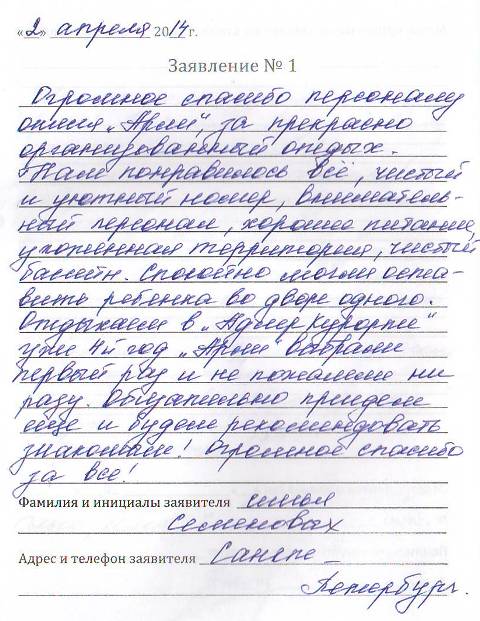 «2» апреля 2014 г.
Заявление № 1
Огромное спасибо персоналу
отеля „Арли", за прекрасно
организованный отдых.
Нам понравилось всё, чистый
и уютный номер, вниматель-
ный персонал, хорошее питание,
ухоженная территория, чистый
бассейн. Спокойно могли оста-
вить ребенка во дворе одного.
Отдыхаем в „Адлер Курорте"
уже 4й год „Арли" выбрали
первый раз и не пожалели ни
разу. Обязательно приедем
еще и будем рекомендовать
знакомым! Огромное спасибо
за все!
Фамилия и инициалы заявителя семья
Семеновых
Адрес и телефон заявителя Санкт-
Петербург.